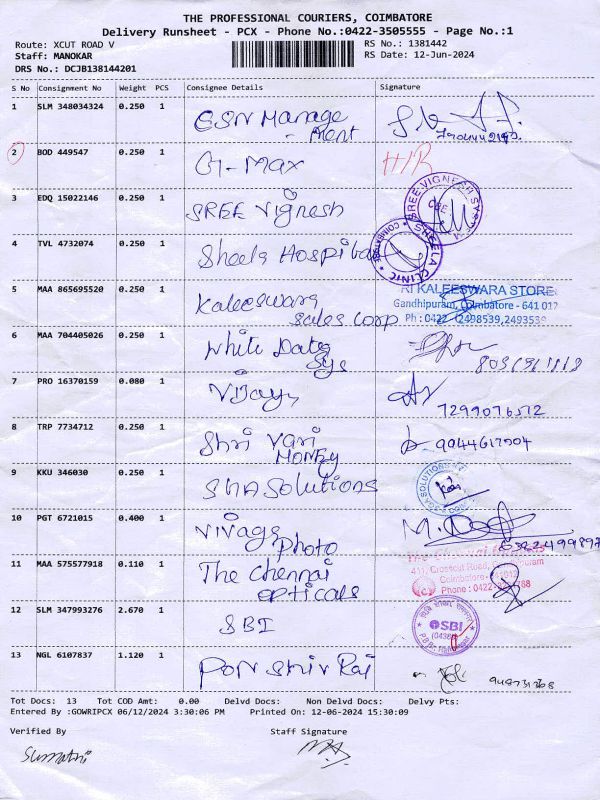 THE PROFESSIONAL COURIERS, COIMBATORE
Delivery Runsheet - PCX - Phone No.:0422-3505555 - Page No.:1
Route: XCUT ROAD V
RS No.: 1381442
Staff: MANOKAR
RS Date: 12-Jun-2024
DRS No.: DCJB138144201
S No Consignment No Weight PCS Consignee Details Signature
1 SLM 348034324 0.250 1 GSN Manage
- Ment
2 BOD 449547 0.250 1 G-Max H/R
3 EDQ 15022146 0.250 1 SREE Vignesh
SREE VIGNESH
4 TVL 4732074 0.250 1 Sheela Hospital
SHEELA CLINIC
5 MAA 865695520 0.250 1 Kaleeswara
Sales Corp
RI KALEESWARA STORE
Gandhipuram, Coimbatore - 641 012
Ph : 0422 - 2498539, 249353
6 MAA 704405026 0.250 1 White Data
Sys
7 PRO 16370159 0.080 1 Vijay
7299076512
8 TRP 7734712 0.250 1 Shri Vari
Money
9944617704
9 KKU 346030 0.250 1 SNA Solutions
10 PGT 6721015 0.400 1 Vivaga
Photo
11 MAA 575577918 0.110 1 The Chennai
opticals
411, Crosscut Road,
Coimbatore - 641012
Phone : 0422-
12 SLM 347993276 2.670 1 SBI
SBI
13 NGL 6107837 1.120 1 PON Shiv Raj
Tot Docs: 13 Tot COD Amt: 0.00 Delvd Docs: Non Delvd Docs: Delvy Pts:
Entered By :GOWRIPCX 06/12/2024 3:30:06 PM Printed On: 12-06-2024 15:30:09
Verified By Staff Signature
Sumathi